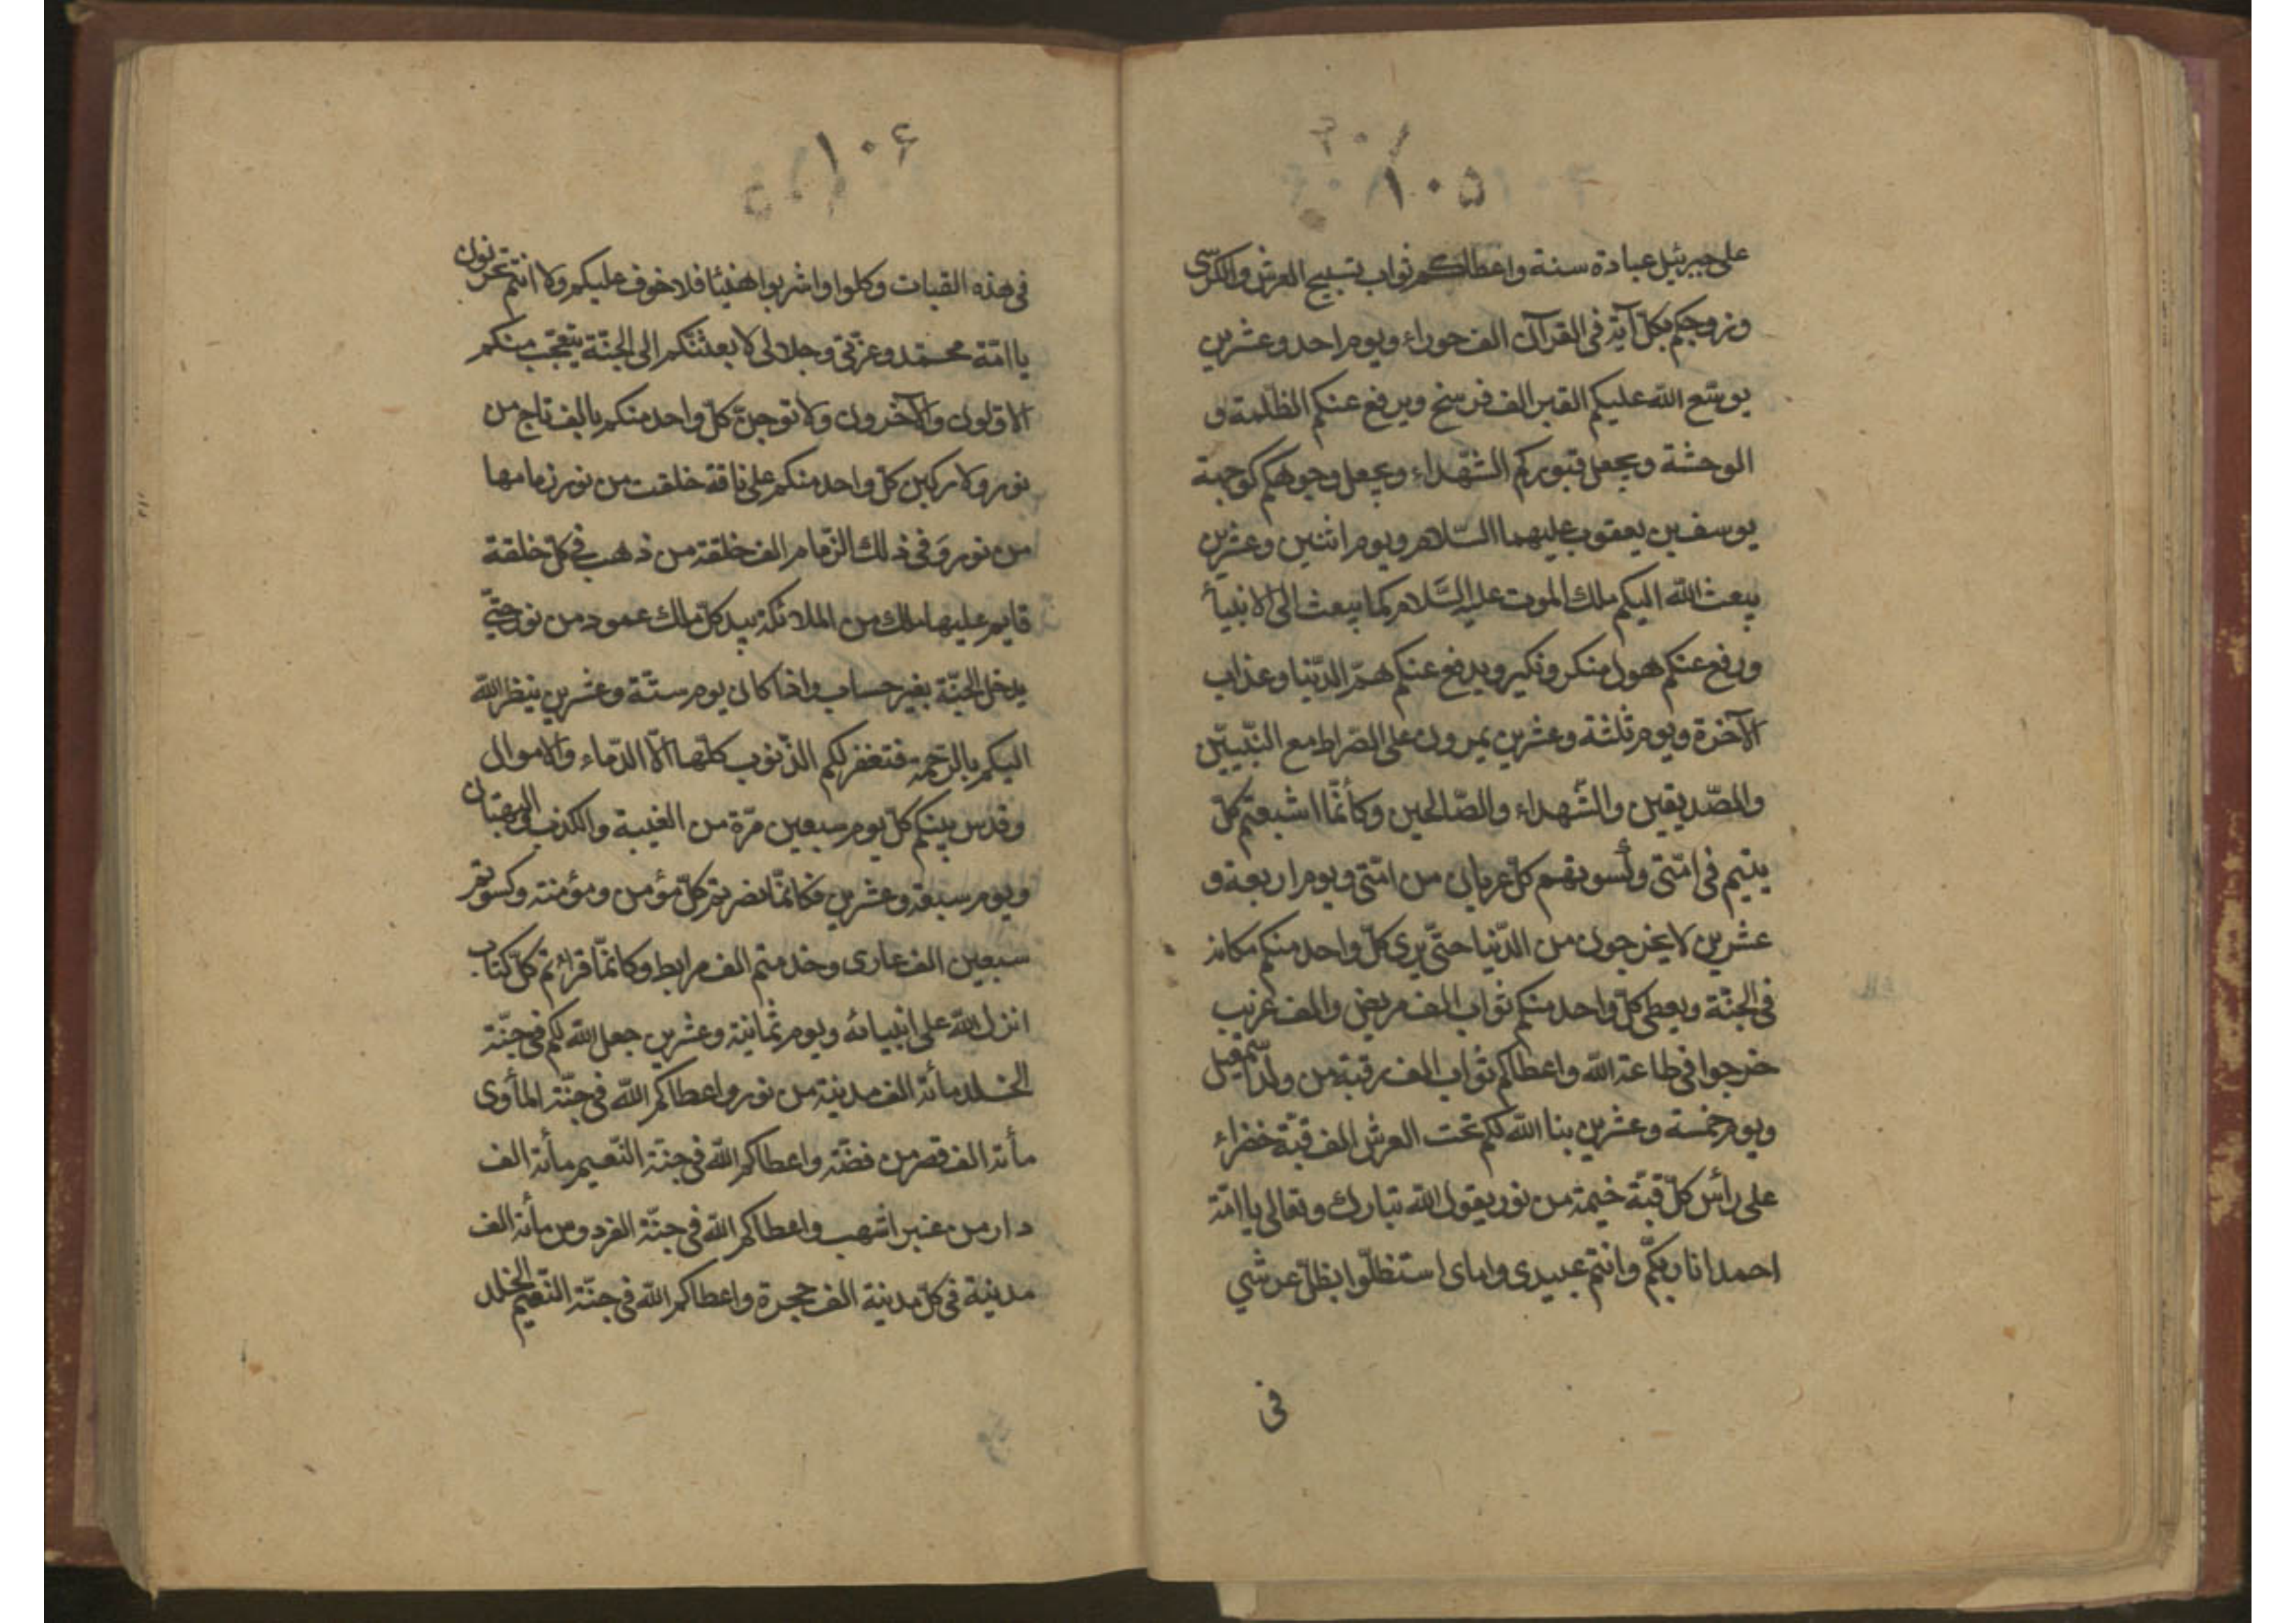 ١٠٥
على جبرئيل عبادة سنة واعطاكم ثواب تسبيح العرش والكرسّى
وزوجكم بكلّ آية فى القرآن الف حوراء ويوم احد وعشرين
يوسّع الله عليكم القبر الف فرسخ ويرفع عنكم الظّلمة و
الوحشة ويجعل قبوركم الشّهداء ويجعل وجوهكم كوجبة
يوسف بن يعقوب عليهما السّلام ويوم اثنين وعشرين
يبعث الله اليكم ملك الموت عليه السّلام كما يبعث الى الانبيأ
ورفع عنكم هول منكر ونكير ويدفع عنكم همّ الدّنيا وعذاب
الآخرة ويوم ثلثة وعشرين يمرون على الصّراط مع النّبيّين
والصّديقين والشّهداء والصّالحين وكأنّما اشبعتم كلّ
يتيم فى امّتى وكسوتهم كلّ عريان من امّتى ويوم اربعة و
عشرين لا يخرجون من الدّنيا حتّى يرى كلّ واحد منكم مكانه
فى الجنّة ويعطى كلّ واحد منكم ثواب الف مريض والف غريب
خرجوا فى طاعة الله واعطاكم ثواب الف رقبة من ولد اسمعيل
ويوم خمسة وعشرين بنا الله لكم تحت العرش الف قبّة خضراء
على رأس كلّ قبّة خيمة من نور يقول الله تبارك وتعالى يا امّة
احمد انا ربّكم وانتم عبيدى واماى استظلّوا بظلّ عرشى
فى
١٠۶
فى هذه القبات وكلوا واشربوا هنيئا فلا خوف عليكم ولا انتم تحزنون
يا امّة محمّد وعزّتى وجلالى لا بعثنّكم الى الجنّة يتعجّب منكم
الاوّلون والآخرون ولا توجنّ كلّ واحد منكم بالف تاج من
نور ولا ركبن كلّ واحد منكم على ناقة خلقت من نور زمامها
من نور وفى ذلك الزّمام الف خلقة من ذهب فى كلّ خلقة
قايم عليها ملك من الملائكة بيد كلّ ملك عمود من نور حتّى
يدخل الجنّة بغير حساب واذا كان يوم ستّة وعشرين ينظر الله
اليكم بالرّحمة فتغفر لكم الذّنوب كلّها الّا الدّماء والاموال
وقدس بينكم كلّ يوم سبعين مرّة من الغيبة والكذب والبهتان
ويوم سبعة وعشرين فكانّما نصرتم كلّ مؤمن ومؤمنة وكسوتم
سبعين الف عارى وخدمتم الف مرابط وكانّما قرائتم كلّ كتاب
انزل الله على انبيائه ويوم ثمانية وعشرين جعل الله لكم فى جنّة
الخلد مأة الف مدينة من نور واعطاكم الله فى جنّة المأوى
مأة الف قصر من فضّة واعطاكم الله فى جنّة النّعيم مأة الف
دار من عنبر اشهب واعطاكم الله فى جنّة الفردوس مأة الف
مدينة فى كلّ مدينة الف حجرة واعطاكم الله فى جنّة النّعيم الخلد